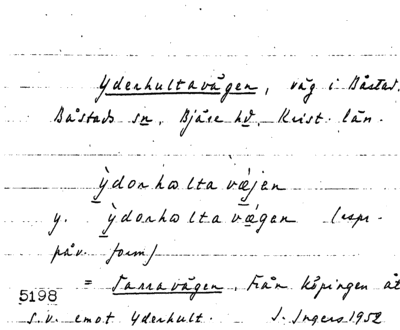 Yderhultavägen, väg i Båstad.
Båstads sn, Bjäre hd, Krist. län.
ỳdorhωlta væ̀jen
y. ỳdorhωlta væ̀gen (espr.
påv. form)
= Tarravägen. Från köpingen åt
5198
s.v. emot Yderhult. I. Ingers 1952